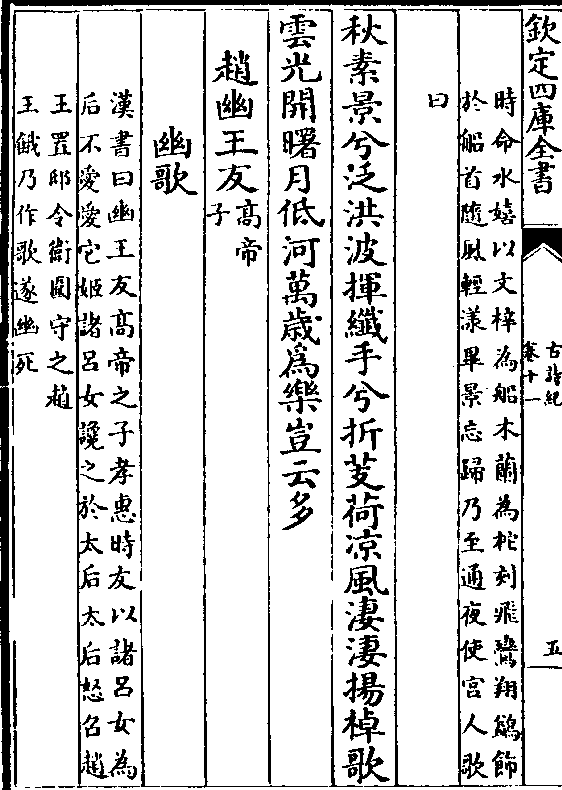 欽定四庫全書
古詩紀
卷十一
五
時命水嬉以文梓為船木蘭為柁刻飛鸞翔鷁飾
於船首隨風輕漾畢景忘歸乃至通夜使宫人歌
曰
秋素景兮泛洪波揮纖手兮折芰荷凉風淒淒揚棹歌
雲光開曙月低河萬歳為樂豈云多
趙幽王友髙帝
子
幽歌
漢書曰幽王友髙帝之子孝惠時友以諸吕女為
后不愛愛它姬諸吕女讒之於太后太后怒召趙
王置邸令衛圍守之趙
王餓乃作歌遂幽死